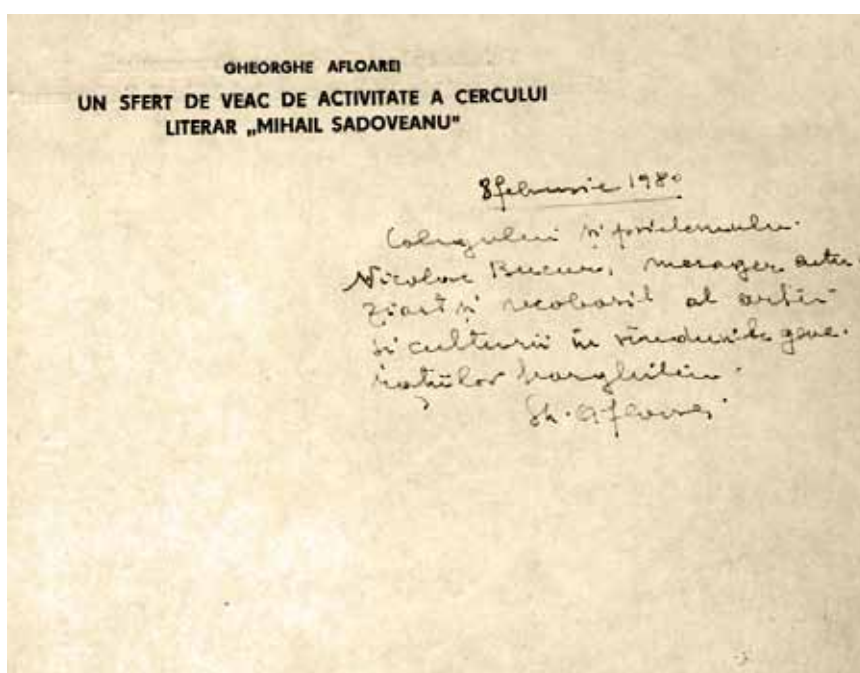 GHEORGHE AFLOAREI
UN SFERT DE VEAC DE ACTIVITATE A CERCULUI
LITERAR „MIHAIL SADOVEANU"
8 februarie 1980
Colegului și prietenului
Nicolae Bucur, mesager entu-
ziast și neobosit al artei
și culturii în rîndurile gene-
rațiilor harghitene.
Gh. Afloarei